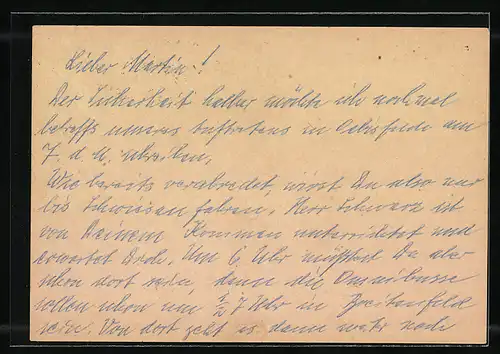 Lieber Martin!
Der Sicherheit halber möchte ich nochmal
betreffs unseres Auftretens in Oebisfelde am
7. d. M. schreiben.
Wie bereits verabredet, wirst Du also nur
bis fahren. Herr Schwarz ist
von Deinem Kommen unterrichtet und
erwartet Dich. Um 6 Uhr müsstest Du aber
schon dort sein, denn die Omnibusse
sollen schon um ½ 7 Uhr in Breitenfeld
sein. Von dort geht es dann nach